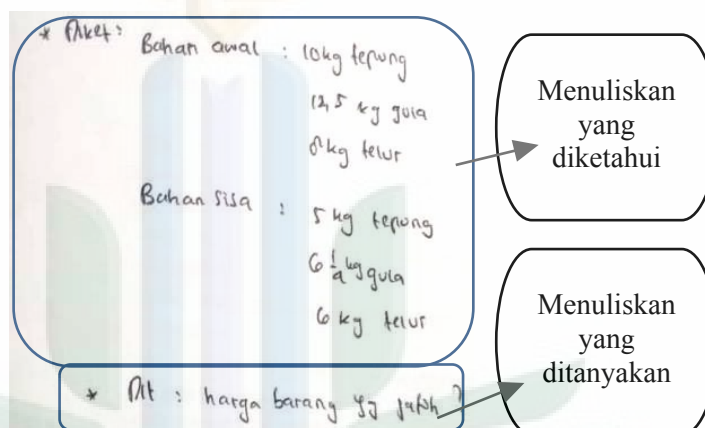 * Diket:
Bahan awal : 10kg tepung
12,5 kg gula
8 kg telur
Bahan sisa : 5 kg tepung
6 1/4 kg gula
6 kg telur
* Dit : harga barang yg jatuh ?
Menuliskan
yang
diketahui
Menuliskan
yang
ditanyakan